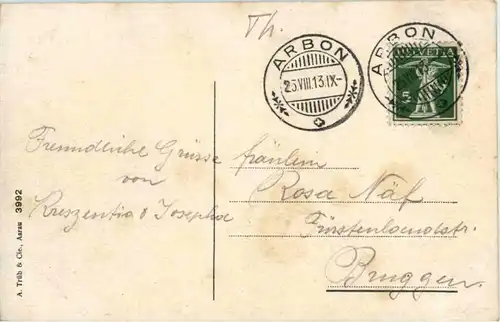 Th.
ARBON
25.VIII.13.IX-
ARBON
HELVETIA
5
Freundliche Grüsse
von
Kreszentia & Josepha
Fräulein
Rosa Näf
Fürstenlandstr.
Bruggen.
A. Trüb & Cie., Aarau 3992